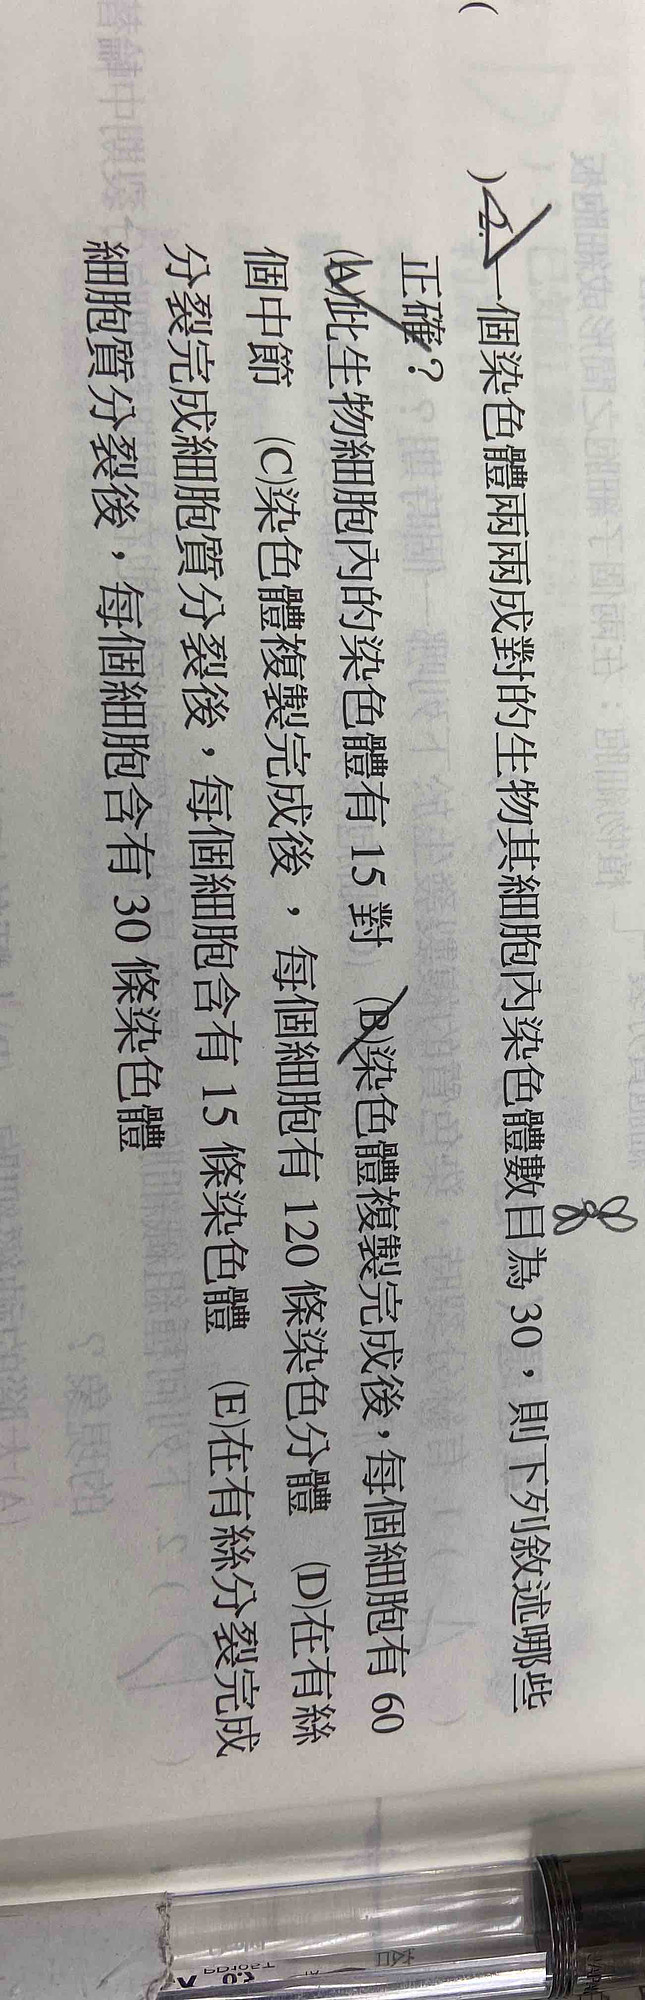 ( )2.一個染色體兩兩成對的生物其細胞內染色體數目為 30,則下列敘述哪些
正確?
(A)此生物細胞內的染色體有 15 對 (B)染色體複製完成後,每個細胞有 60
個中節 (C)染色體複製完成後,每個細胞有 120 條染色分體 (D)在有絲
分裂完成細胞質分裂後,每個細胞含有 15 條染色體 (E)在有絲分裂完成
細胞質分裂後,每個細胞含有 30 條染色體